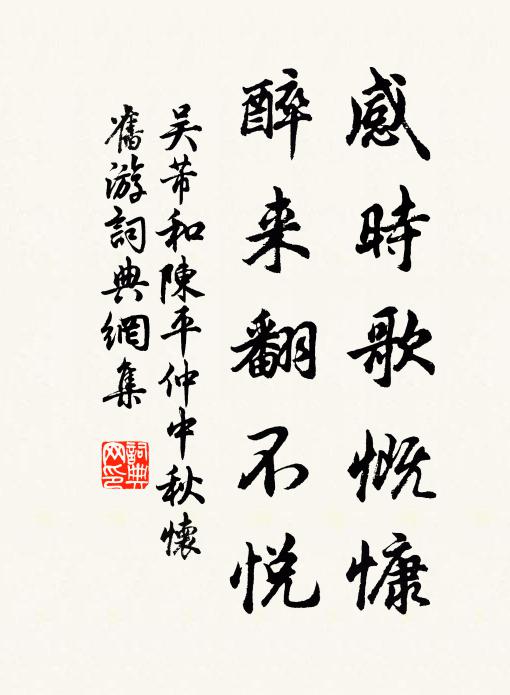 感時歌慨慷
醉来翻不悦
吴芾和陳平仲中秋懷
舊游詞典網集
詞典網印